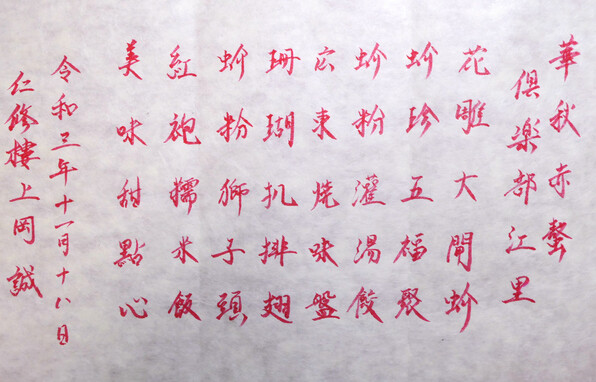 華秋赤螯
倶楽部江里
花雕大閘蚧
蚧珍五福聚
蚧粉灌湯餃
広東焼味盤
珊瑚扒排翅
蚧粉獅子頭
紅袍糯米飯
美味甜點心
令和三年十一月十八日
仁修樓上岡誠